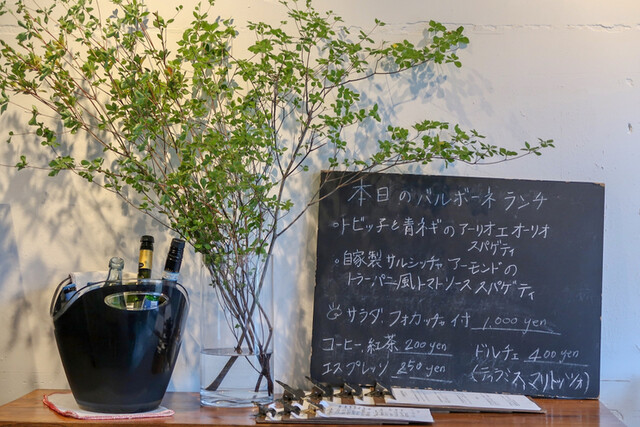 本日のバルボーネランチ
・トビッ子と青ネギのアーリオエオーリオ
スパゲティ
・自家製サルシッチャ アーモンドの
トラーパニ風トマトソース スパゲティ
サラダ、フォカッチャ付 1,000 yen
コーヒー、紅茶 200 yen ドルチェ 400 yen
エスプレッソ 250 yen (ティラミス、マリトッツォ)